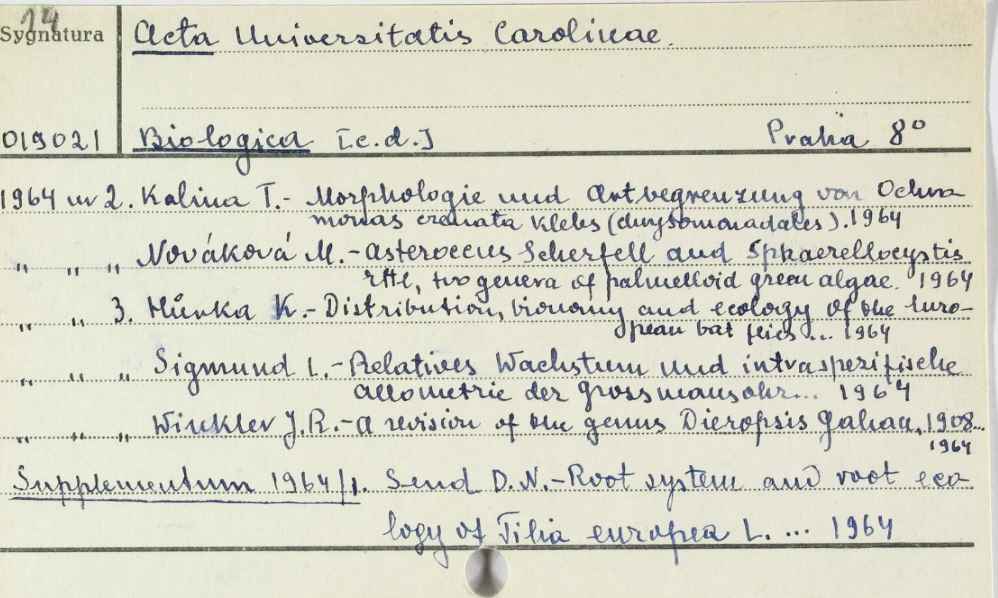 14
Sygnatura Acta Universitatis Carolinae.
019021 Biologica [c.d.] Praha 8°
1964 nr 2. Kalina T.- Morphologie und Artbegrenzung von Ochro
monas crenata Klebs (chrysomonadales). 1964
" " " Nováková M.- Asterococcus Scherffell and Sphaerellocystis
Ettl, two genera of palmelloid green algae. 1964
" " 3. Hůrka K.- Distribution, bionomy and ecology of the Euro-
pean bat flies... 1964
" " " Sigmund L.- Relatives Wachstum und intraspezifische
Allometrie der Grossmausohr... 1964
" " " Winkler J.R.- A revision of the genus Dieropsis Gahan, 1908...
1964
Supplementum 1964/1. Send D.N.- Root system and root eco-
logy of Tilia europea L. ... 1964